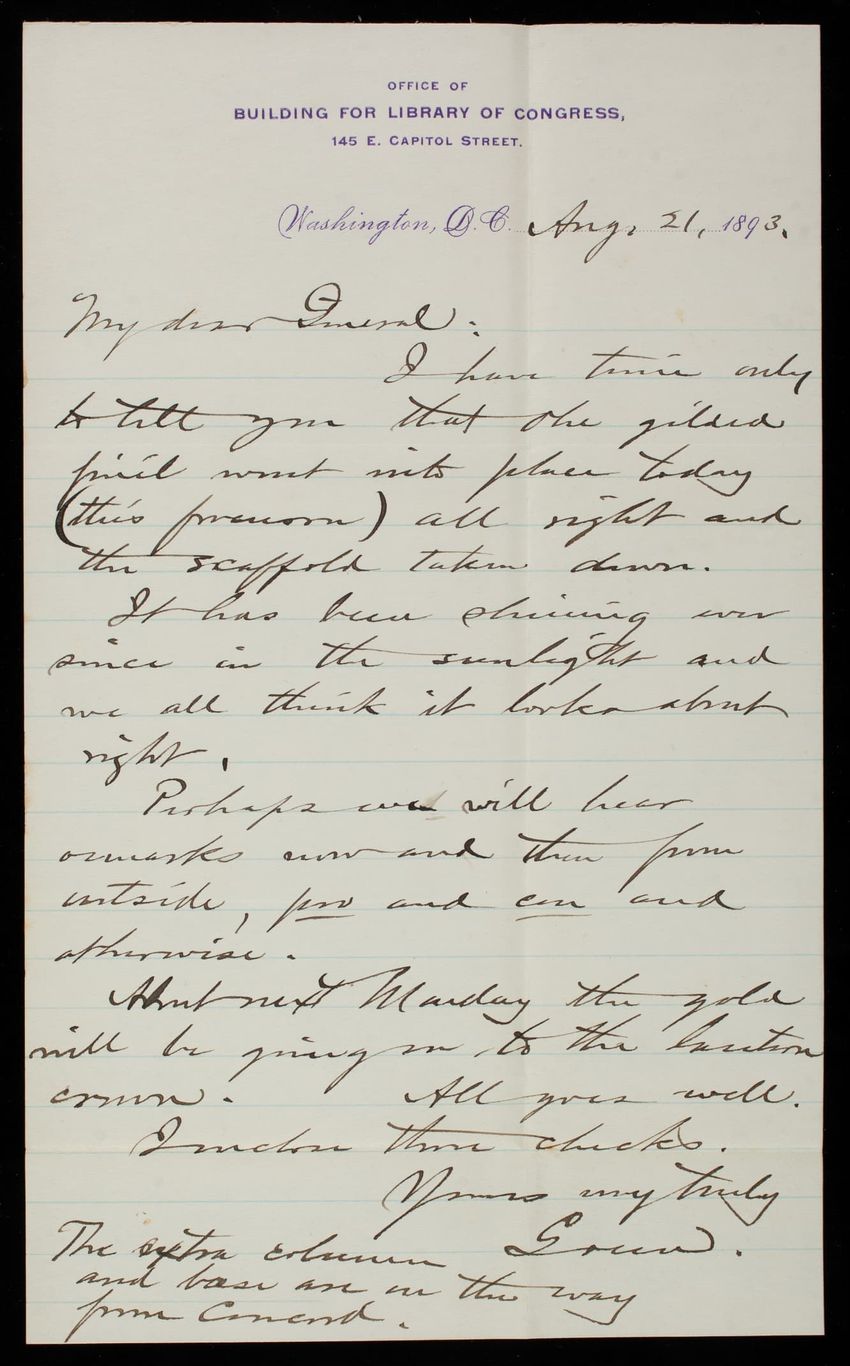 OFFICE OF
BUILDING FOR LIBRARY OF CONGRESS,
145 E. CAPITOL STREET.
Washington, D.C. Aug. 21, 1893.
My dear General:
I have time only
to tell you that the gilded
finial went into place today
(this forenoon) all right and
the scaffold taken down.
It has been shining ever
since in the sunlight and
we all think it looks about
right.
Perhaps we will hear
remarks now and then from
outside, pro and con and
otherwise.
About next Monday the gold
will be going on to the lantern
crown. All goes well.
I enclose three checks.
Yours very truly
Green.
The extra column
and base are on the way
from Concord.